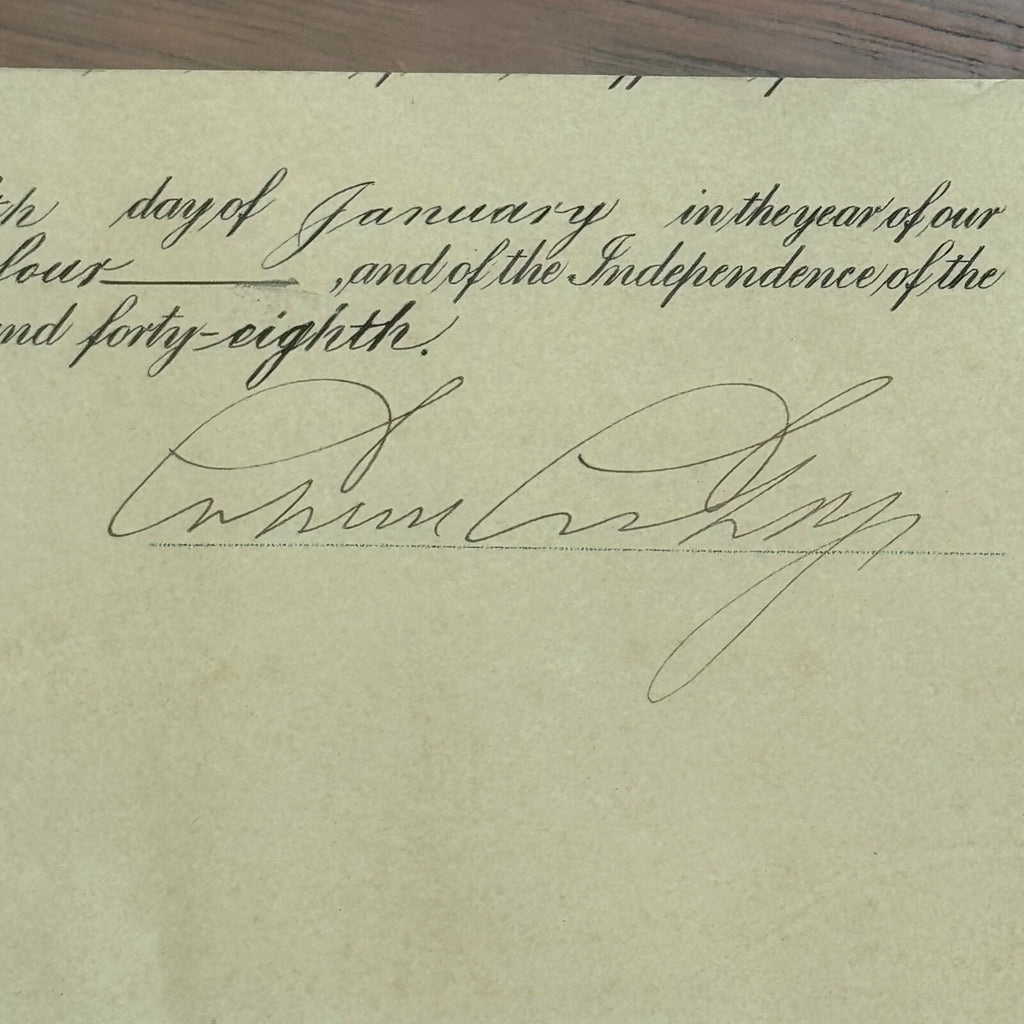 th day of January in the year of our
four ,and of the Independence of the
nd forty-eighth.